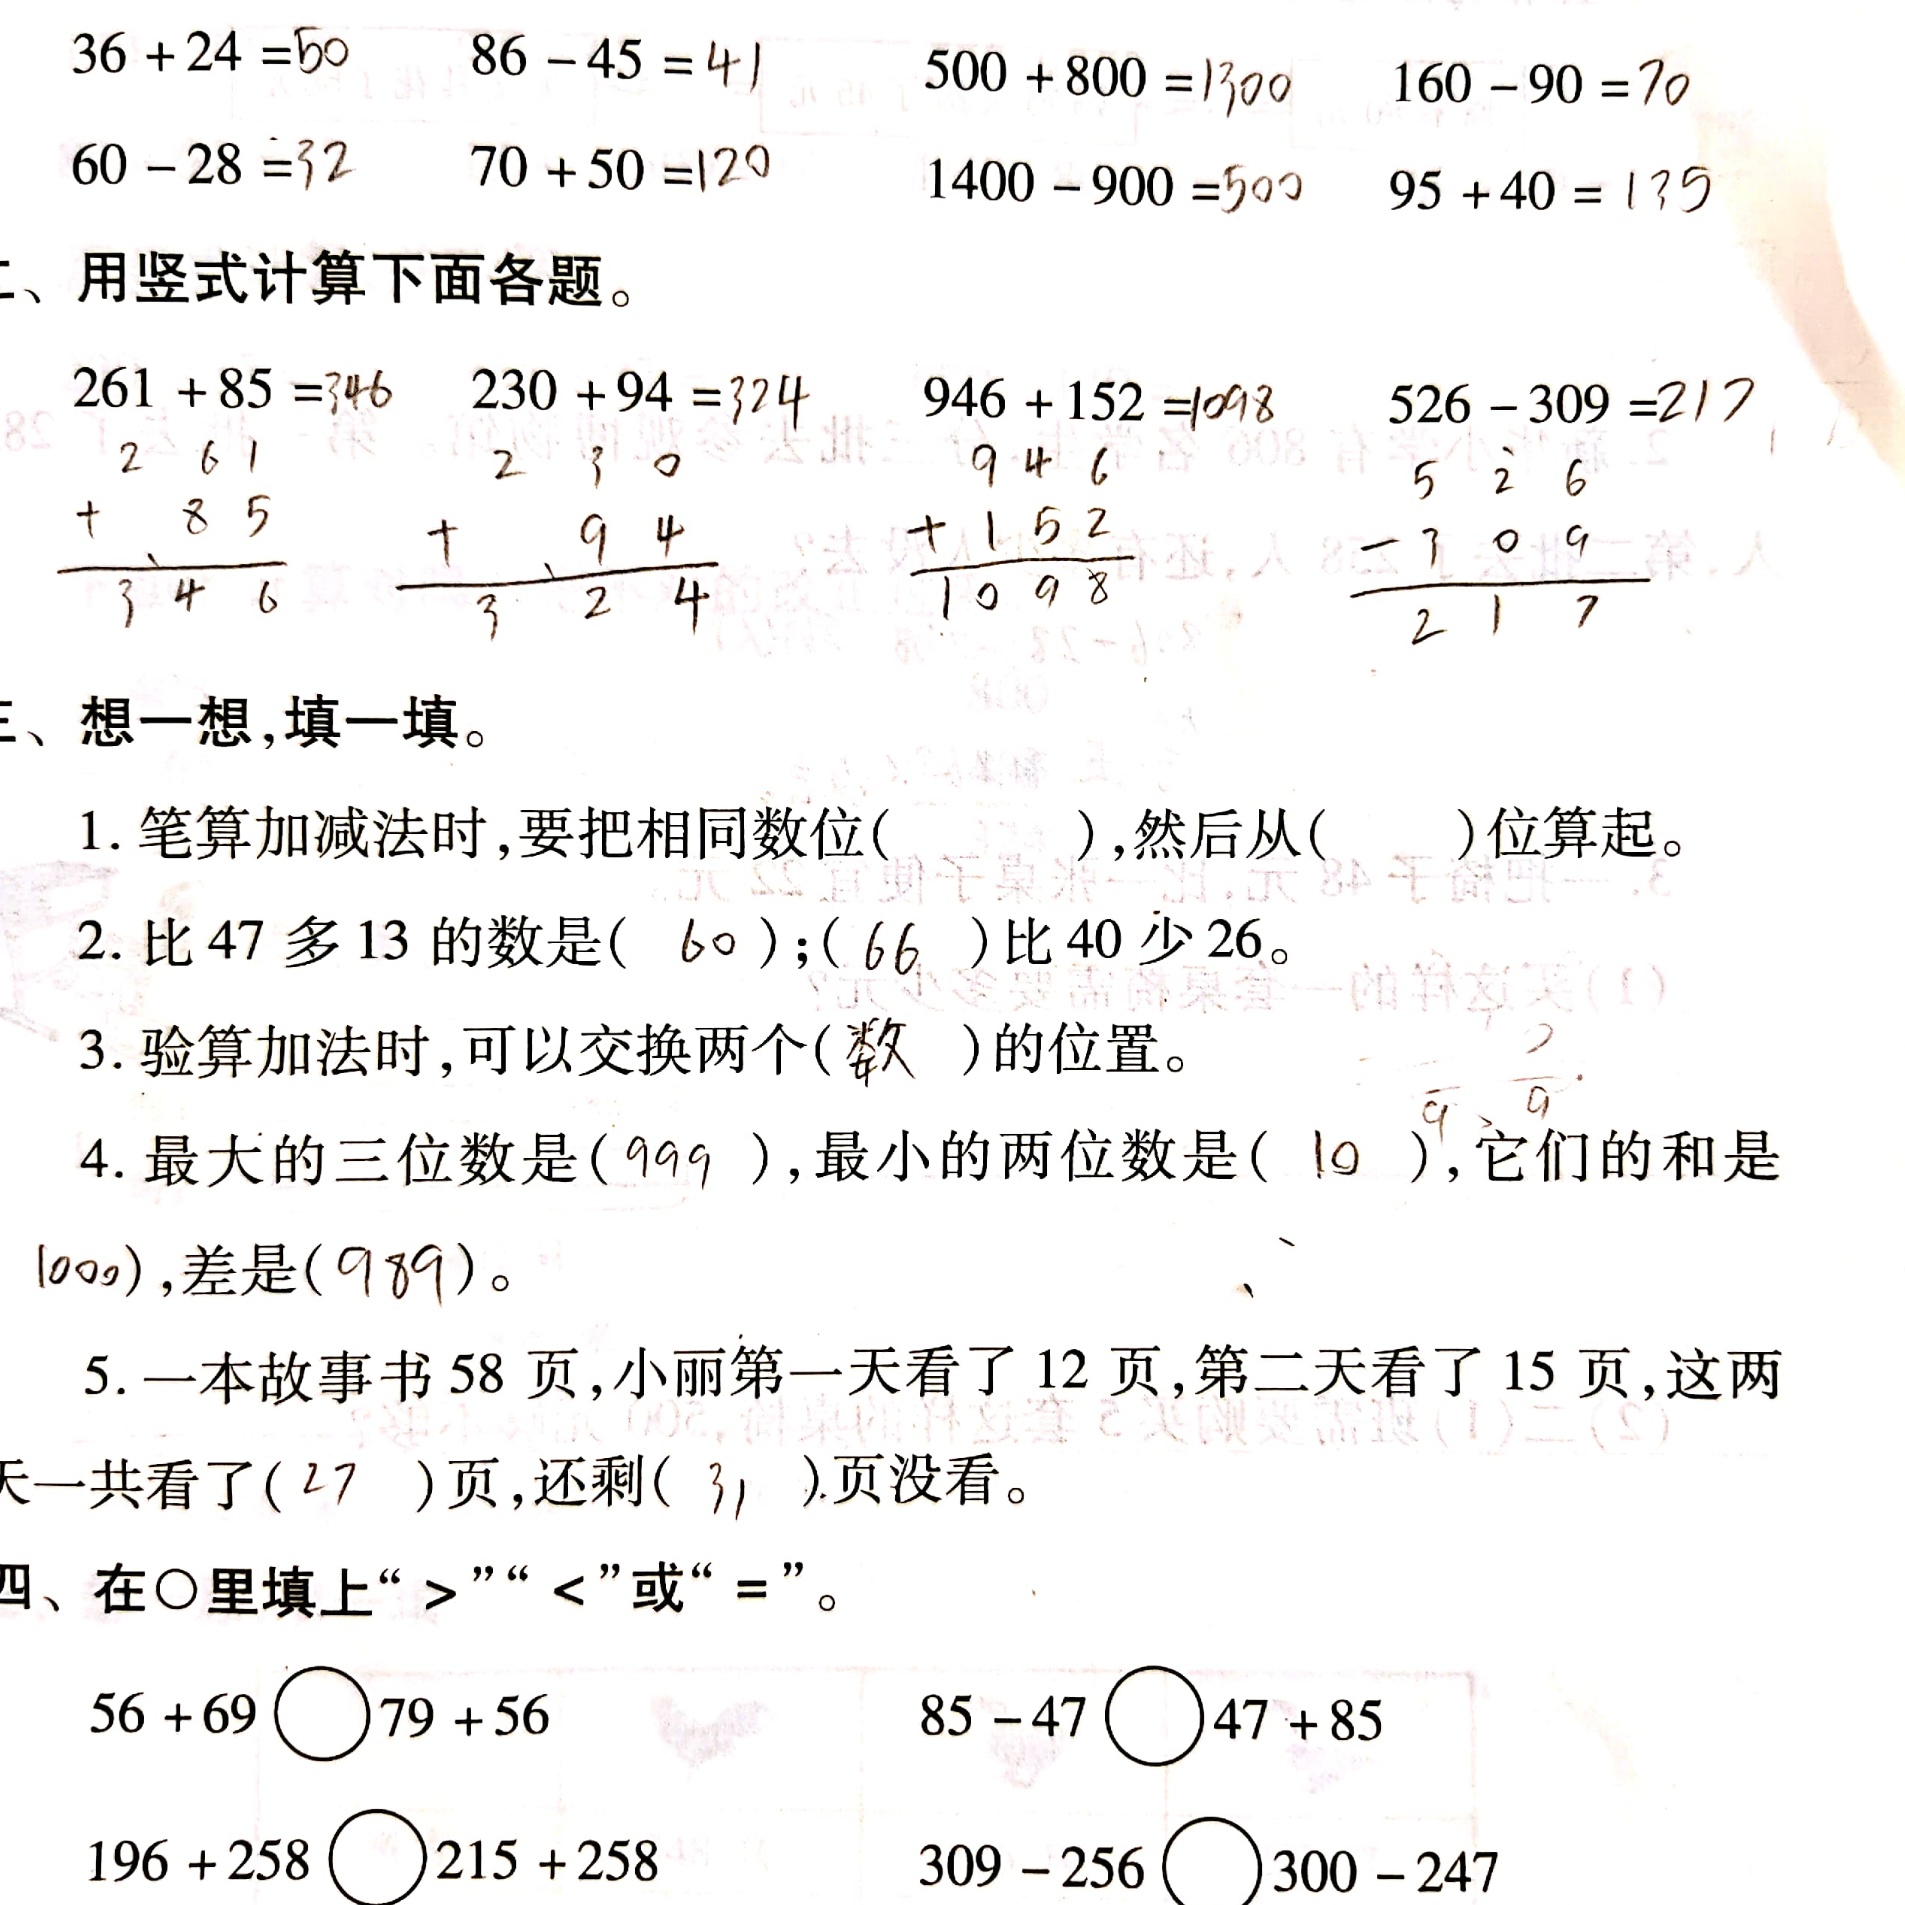 36 + 24 = 50 86 - 45 = 41 500 + 800 = 1300 160 - 90 = 70
60 - 28 = 32 70 + 50 = 120 1400 - 900 = 500 95 + 40 = 135
二、用竖式计算下面各题。
261 + 85 = 346 230 + 94 = 324 946 + 152 = 1098 526 - 309 = 217
2 6 1 2 3 0 9 4 6 5 2 6
+ 8 5 + 9 4 + 1 5 2 - 3 0 9
3 4 6 3 2 4 1 0 9 8 2 1 7
三、想一想,填一填。
1. 笔算加减法时,要把相同数位( ),然后从( )位算起。
2. 比 47 多 13 的数是( 60 );( 66 )比 40 少 26。
3. 验算加法时,可以交换两个( 数 )的位置。
4. 最大的三位数是( 999 ),最小的两位数是( 10 ),它们的和是
1000),差是( 989 )。
5. 一本故事书 58 页,小丽第一天看了 12 页,第二天看了 15 页,这两
天一共看了( 27 )页,还剩( 31 )页没看。
四、在○里填上“ > ”“ < ”或“ = ”。
56 + 69 ○ 79 + 56 85 - 47 ○ 47 + 85
196 + 258 ○ 215 + 258 309 - 256 ○ 300 - 247